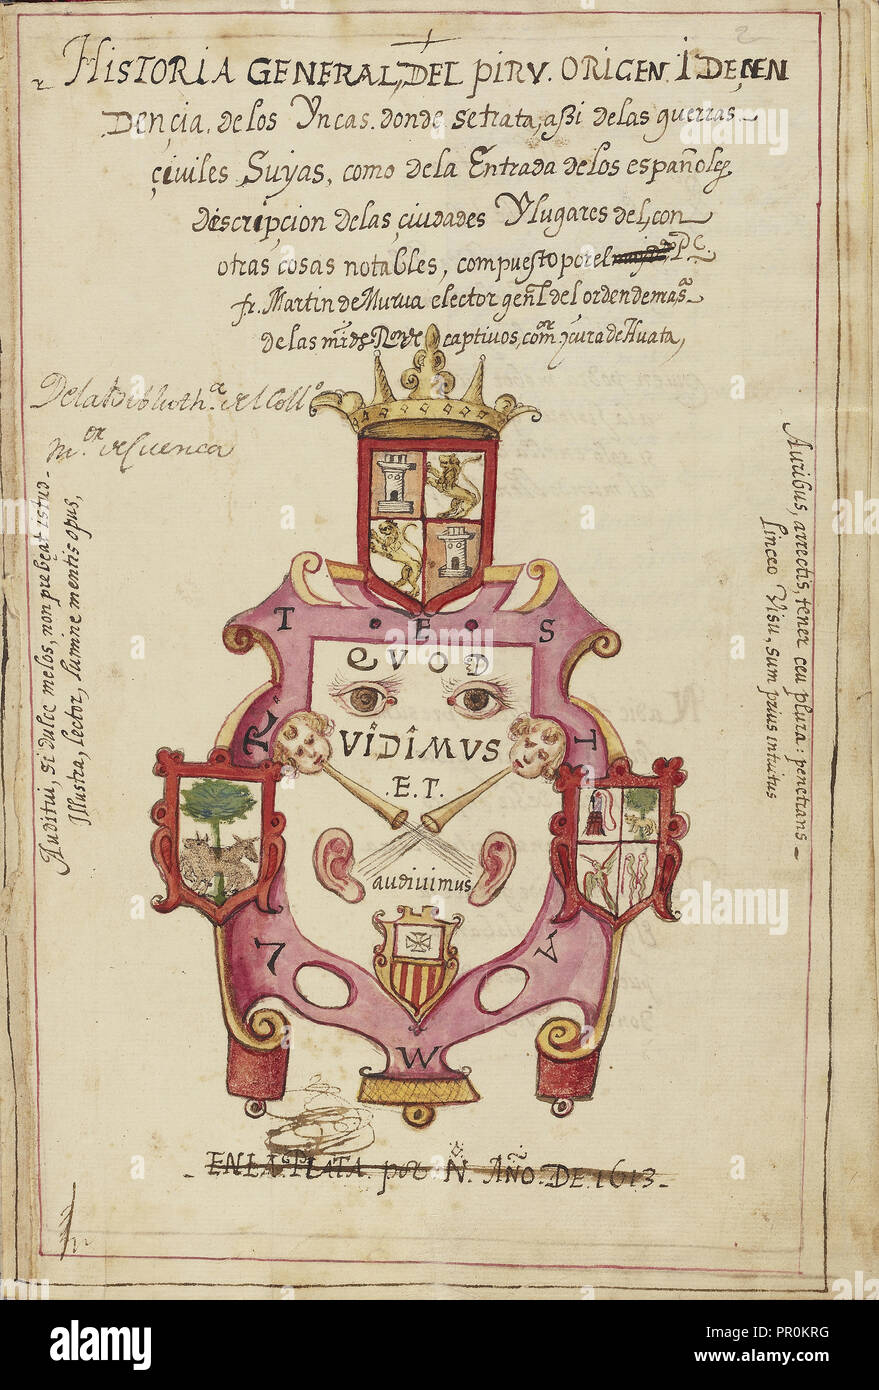 2
HISTORIA GENERAL, DEL PIRV. ORIGEN. I DEÇEN
DENÇIA. de los Yncas. donde se trata, aßi de las guerras
çiuiles Suyas, como de la Entrada de los españoles,
discripçion de las çiudades Y lugares del, con
otras cosas notables, compuesto por el P.e.
fr. Martin de Murua elector gen̄l del orden de n̄ra s.a
de las m̄rds Rede captiuos, com.or y cura de Huata,
De la Biblioth.a del Coll.o
m.or de Cuenca
Auditui, si dulce melos, non prebeat istud
Illustra, lector, lumine mentis opus,
Auribus, arrectis, tener ceu plura: penetrans
Linceo Visu, sum prius intuitus
T . E . S
QVOD
R
VIDIMVS
T
.E.T.
audiuimus
L
A
W
EN LA PLATA. por N. AÑO. DE. 1613.
alamy
a
alamy
Image ID: PR0KRG
www.alamy.com